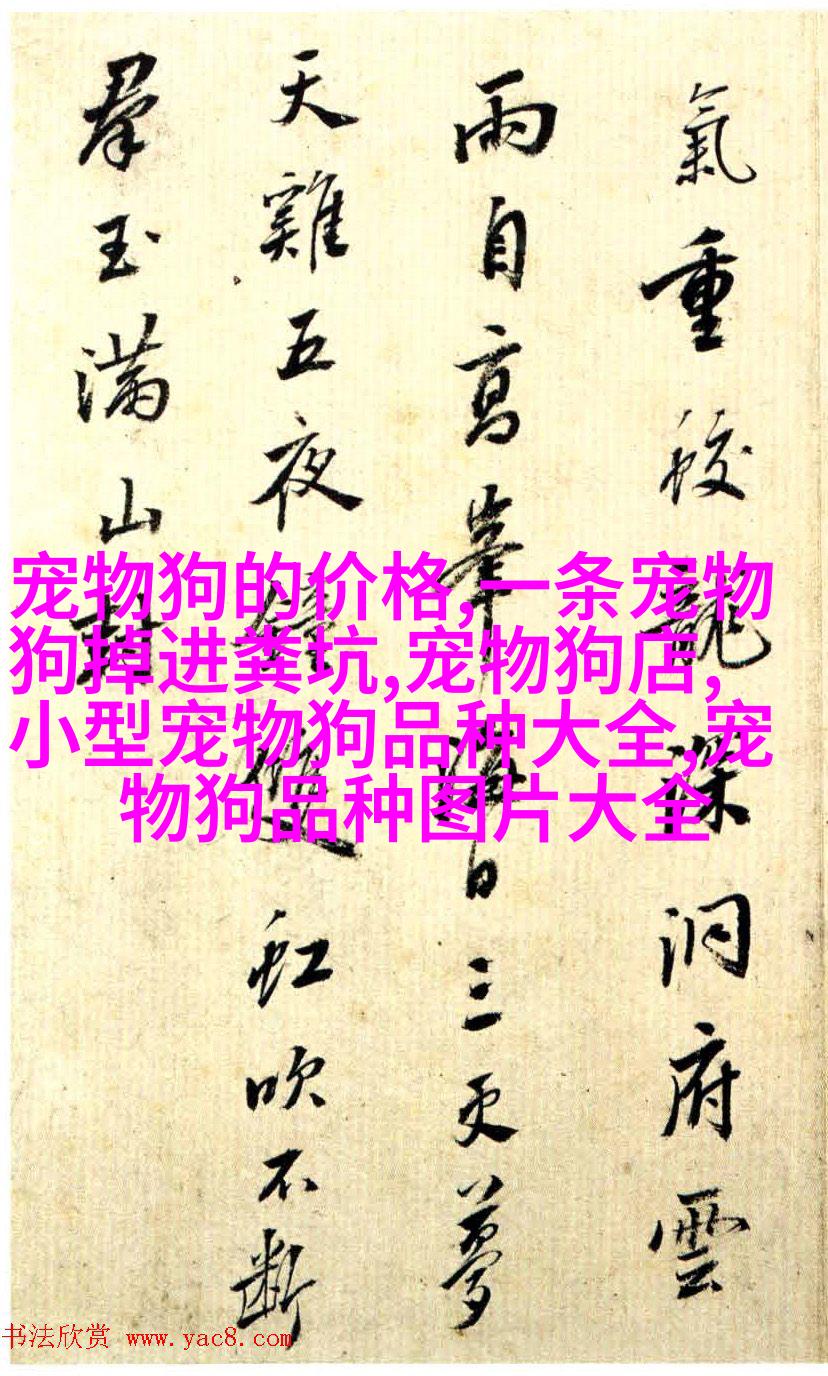 氣重蛟龍深洞府雲
雨自高峯海日三更夢
天雞五夜鐘雙虹吹不断
羣玉满山
宠物狗的价格,一条宠物
狗掉进粪坑,宠物狗店,
小型宠物狗品种大全,宠
物狗品种图片大全
书法欣赏 www.yac8.com